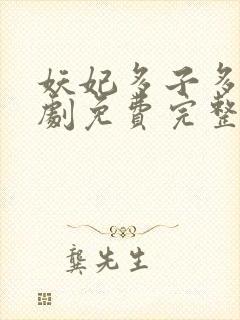 妖妃多子多
劇免費完整
龔先生